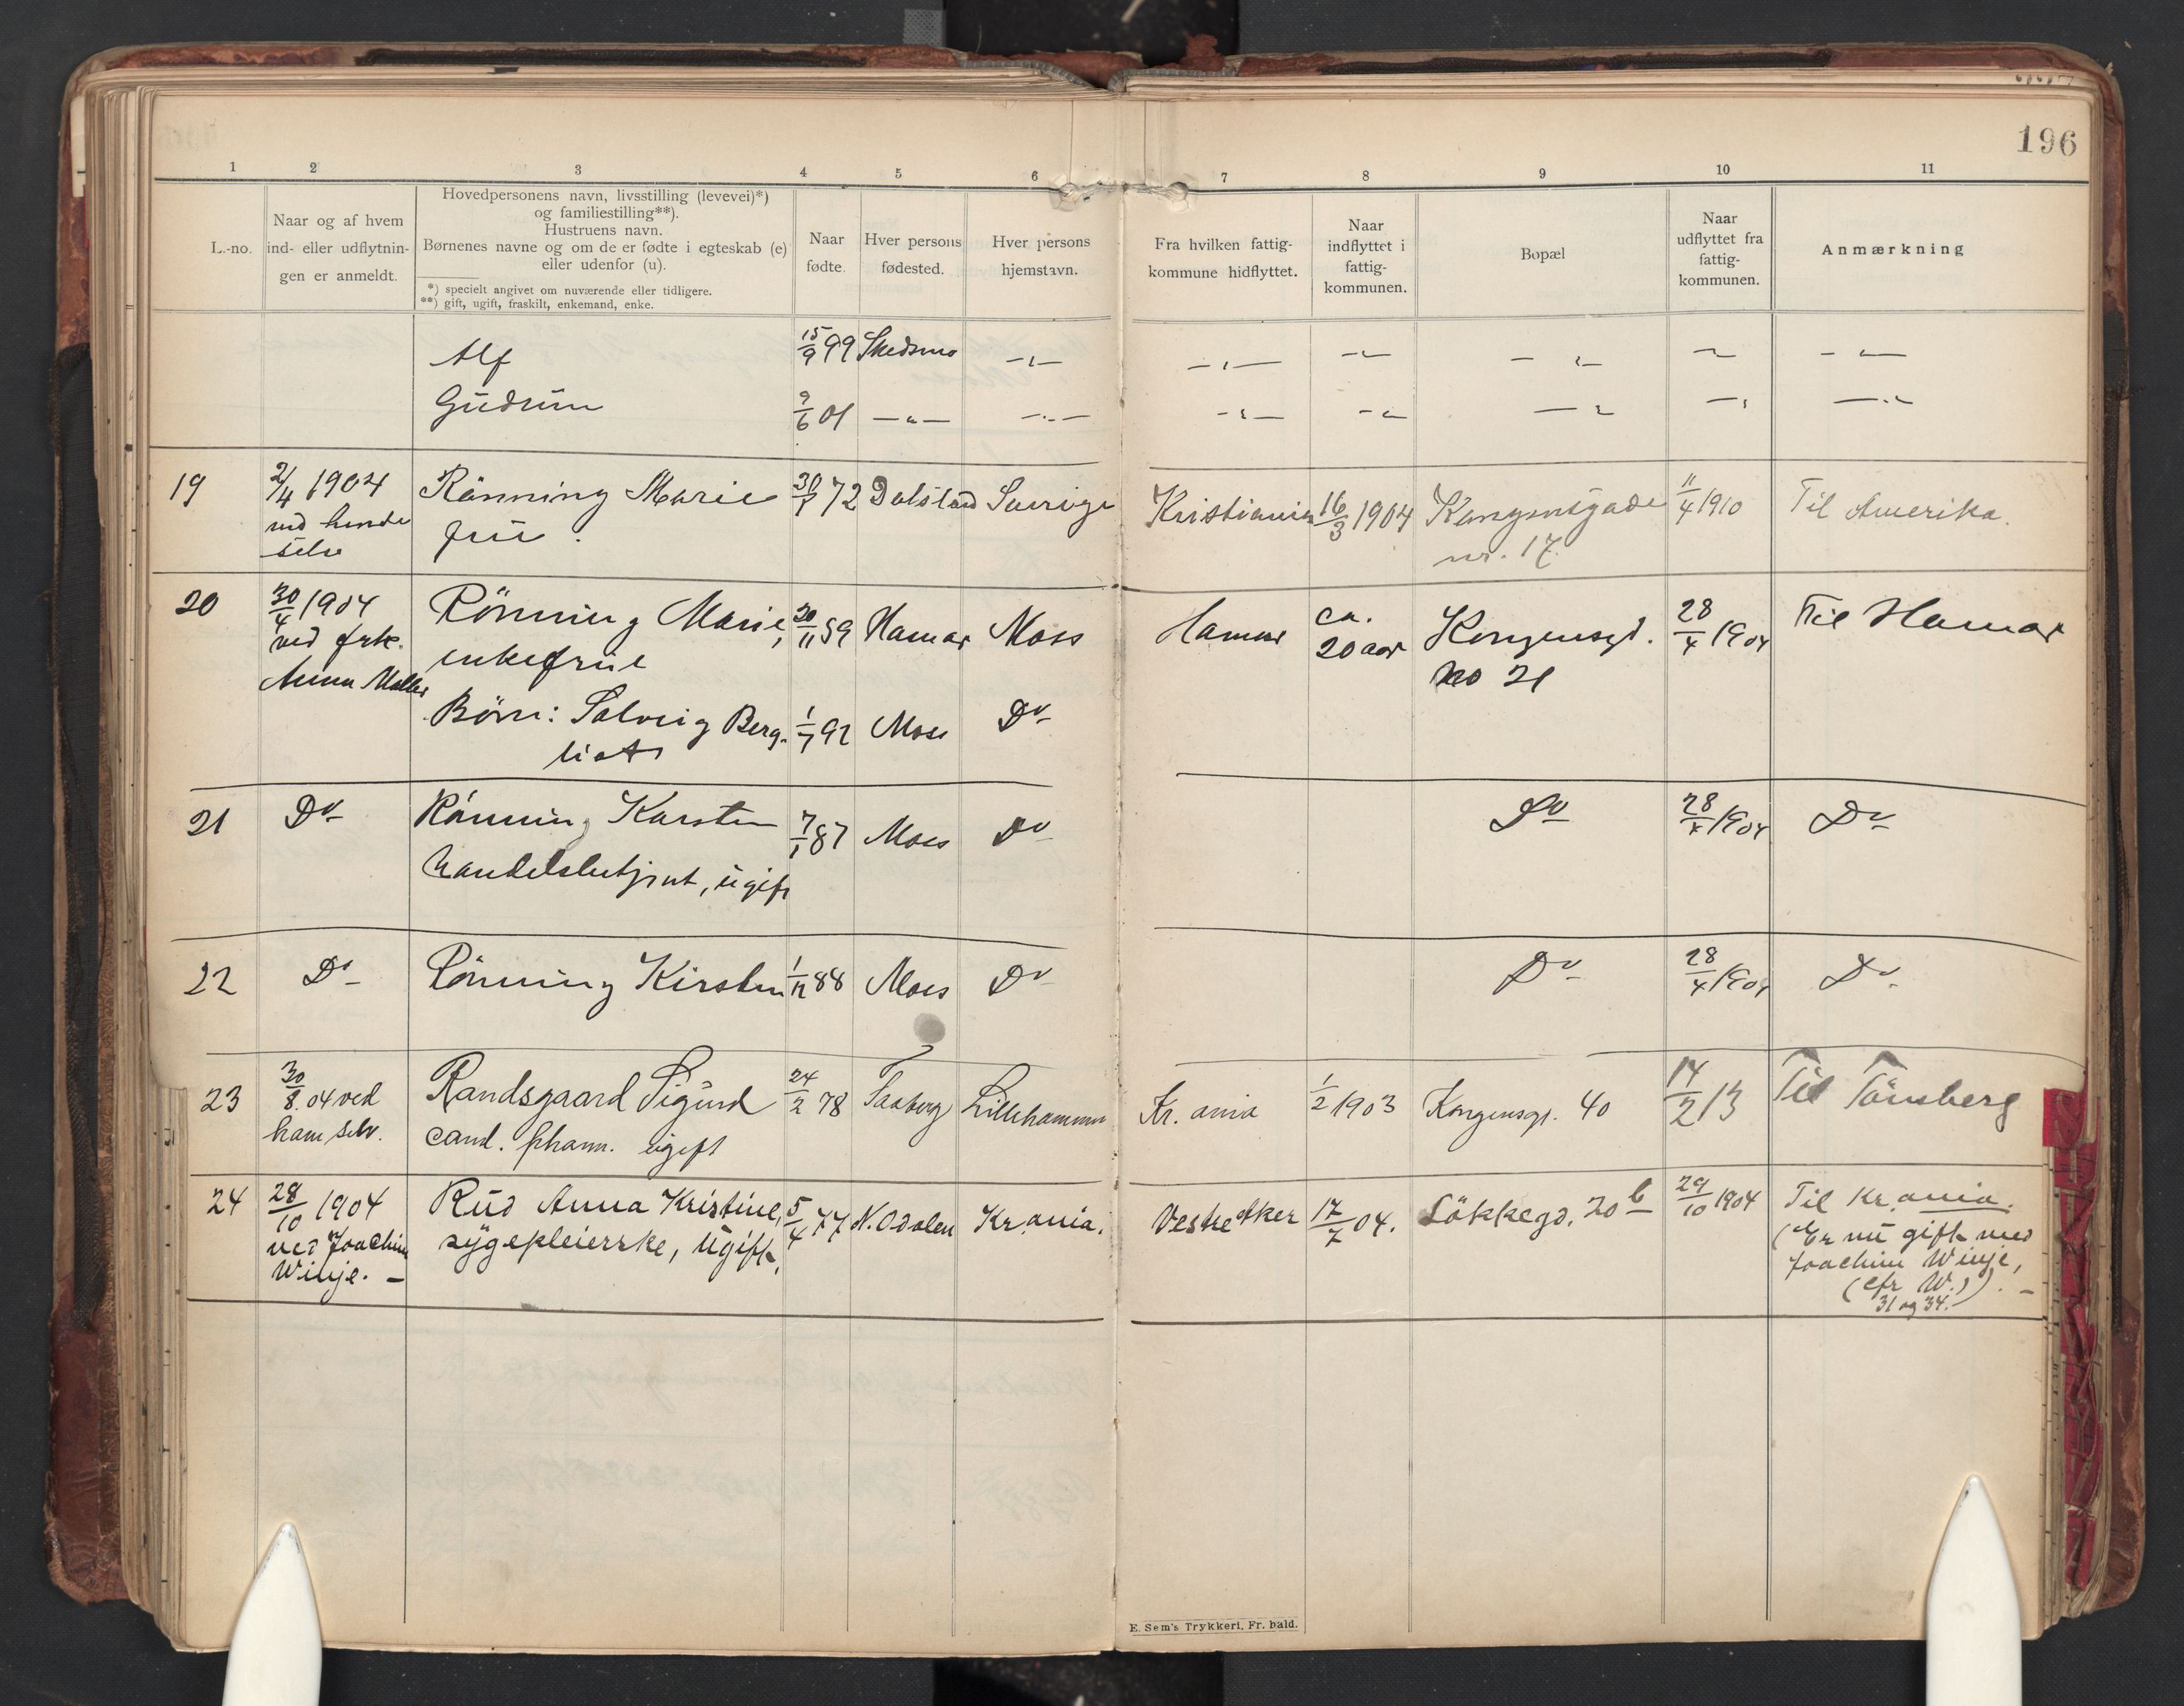 196
1 2 3 4 5 6 7 8 9 10 11
L.-no.
Naar og af hvem
ind- eller udflytnin-
gen er anmeldt.
Hovedpersonens navn, livsstilling (levevei)*)
og familiestilling**).
Hustruens navn.
Børnenes navne og om de er fødte i egteskab (e)
eller udenfor (u).
*) specielt angivet om nuværende eller tidligere.
**) gift, ugift, fraskilt, enkemand, enke.
Naar
fødte.
Hver persons
fødested.
Hver persons
hjemstavn.
Fra hvilken fattig-
kommune hidflyttet.
Naar
indflyttet i
fattig-
kommunen.
Bopæl
Naar
udflyttet fra
fattig-
kommunen.
Anmærkning
Alf 15/9 99 Skedsmo -„- -„- -„- -„- -„- -„-
Gudrun 9/6 01 -„- -„- -„- -„- -„- -„- -„-
19 2/4 1904 Rönning Marie 72 Dalsland Sverige Kristiania 16/3 1904 Kongensgade 11/4 1910 Til Amerika.
ved hende frü. nr. 17.
selv
20 30/4 1904 Rönning Marie, 20/11 59 Hamar Moss Hamar ca. Kongensgd. 28/4 1904 Til Hamar
ved frk. enkefrue 20 aar no 21
Anna Møller
Börn: Solveig Berg- 1/7 92 Moss Do
liot
21 Do Rönning Karsten 7/1 87 Moss Do Do 28/4 1904 Do
handelsbetjent, ügift
22 Do Rönning Kirsten 1/12 88 Moss Do Do 28/4 1904 Do
23 30/8. 04 ved Randsgaard Sigurd 24/2 78 Faaberg Lillehammer Kr. ania 1/2 1903 Kongensgt. 40 14/2 13 Til Tönsberg
ham selv. cand. pharm. ügift
24 28/10 1904 Rüd Anna Kristine, 5/4 77 N. Odalen Kr.ania. Vestre Aker 17/7 04. Lökkegd. 20 b 29/10 1904 Til Kr.ania.
ved Joachim sygepleierske, ügift. (Er nü gift med
Winje. - Joachim Winje,
(cfr W.)). -
31 og 34.-
E. Sem's Trykkeri, Fr. hald.